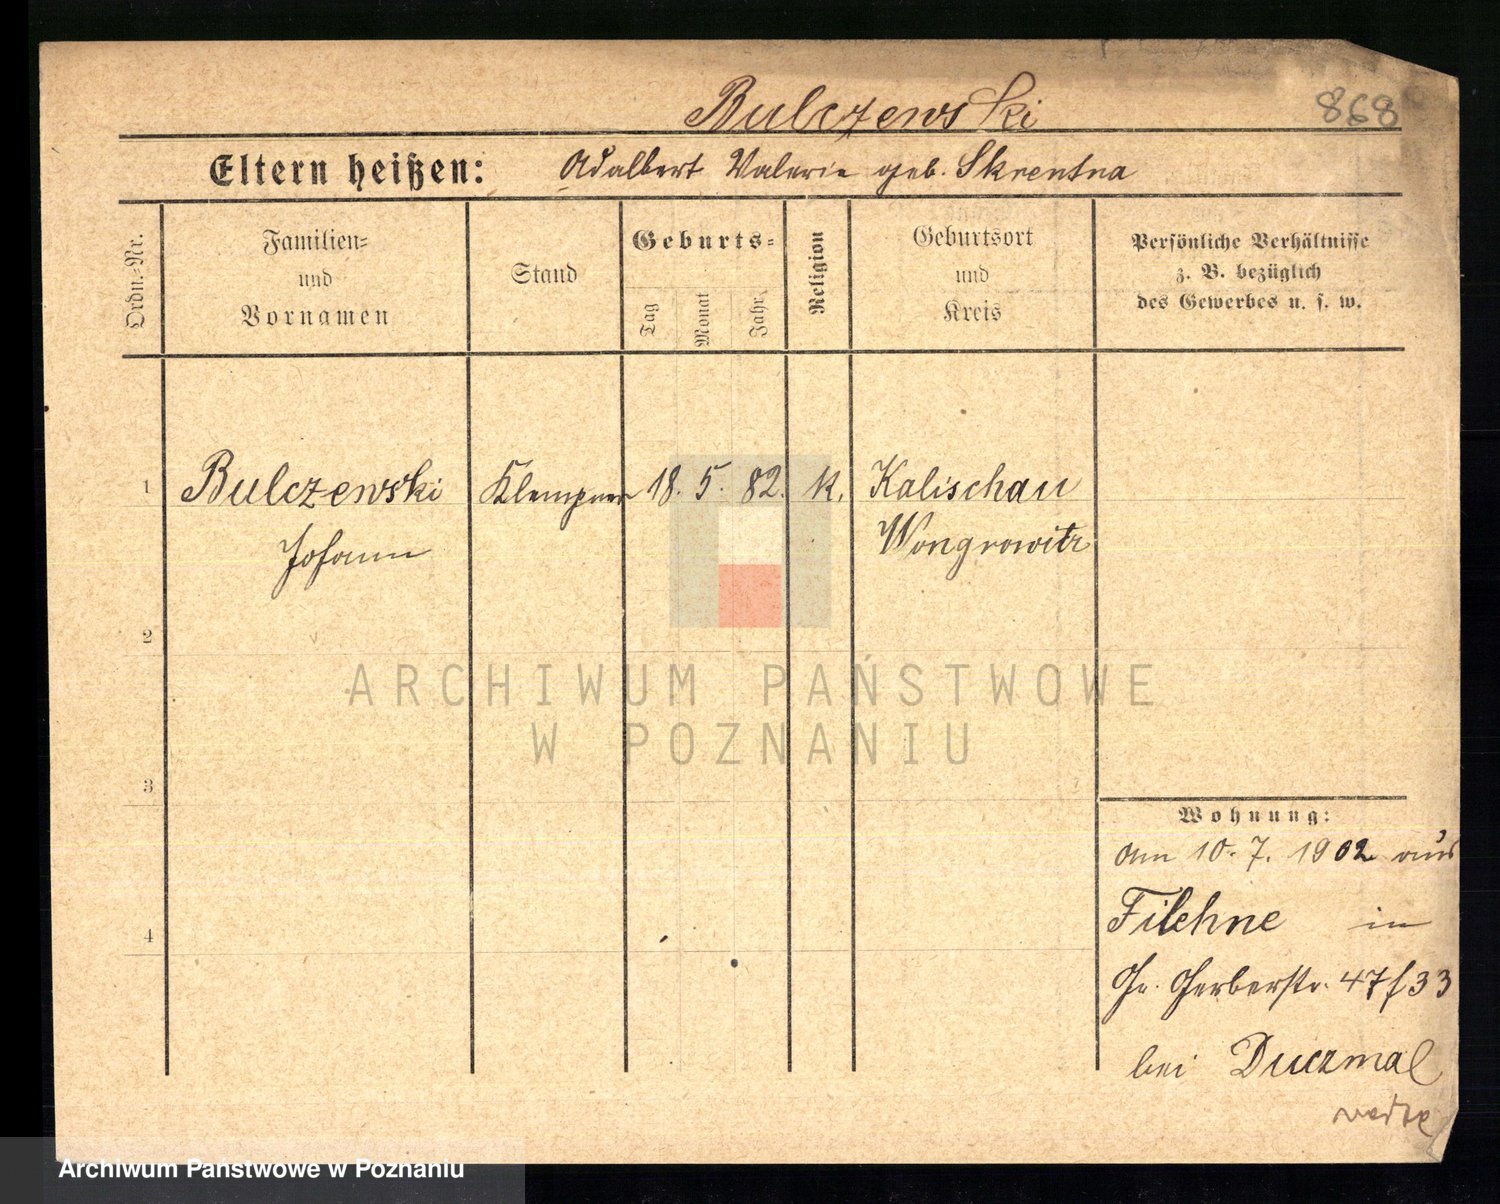 Bulczewski
868
Eltern heißen: Adalbert Valerie geb. Skrentna
Ordn.-Nr.
Familien-
und
Vornamen
Stand
Geburts-
Tag
Monat
Jahr
Religion
Geburtsort
und
Kreis
Persönliche Verhältnisse
z. B. bezüglich
des Gewerbes u. s. w.
1 Bulczewski Klempner 18. 5. 82. k. Kalischau
Johann Wongrowitz
2
3
4
Wohnung:
am 10. 7. 1902 aus
Filehne in
Gr. Gerberstr. 47/33
bei Duczmal
ARCHIWUM PAŃSTWOWE
W POZNANIU
Archiwum Państwowe w Poznaniu